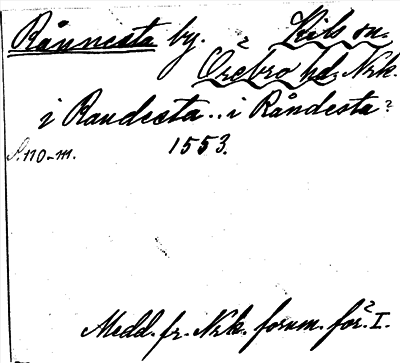 Rånnesta by. Kils sn.
Örebro hd, Nrk.
i Randesta .. i Råndesta
S. 110-111. 1553.
Medd. fr. Nrk. fornm. för. I.